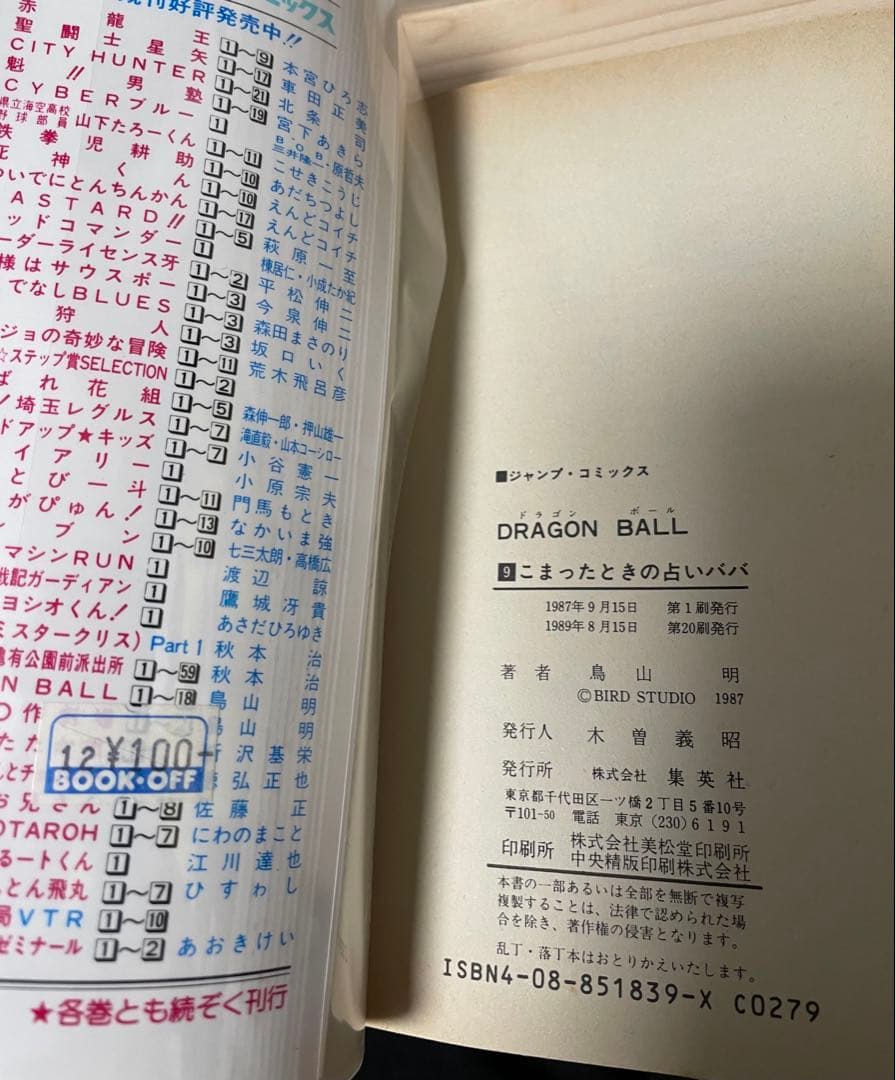 ミックス
既刊好評発売中!!
赤龍王 1〜9 本宮ひろ志
聖闘士星矢 1〜17 車田正美
CITY HUNTER 1〜21 北条司
魁!!男塾 1〜19 宮下あきら
CYBERブルー 1 BOB・三井隆一・原哲夫
県立海空高校野球部員山下たろーくん 1〜11 こせきこうじ
鉄拳児耕助 1〜10 あだちつよし
死神くん 1〜10 えんどコイチ
ついでにとんちんかん 1〜17 えんどコイチ
ASTARD!! 1〜5 萩原一至
ッドコマンダー 1 棟居仁・小成たか紀
ーダーライセンス牙 1〜2 平松伸二
様はサウスポー 1〜3 今泉伸二
でなしBLUES 1〜3 森田まさのり
狩人 1〜3 坂口いく
ジョの奇妙な冒険 1〜11 荒木飛呂彦
☆ステップ賞SELECTION 1〜2
ばれ花組 1〜5 森伸一郎・押山雄一
!埼玉レグルス 1〜7 滝直毅・山本コーシロー
ドアップ★キッズ 1〜7 小谷憲一
イアリー 1 小原宗夫
とび一斗 1〜11 門馬もとき
がぴゅん! 1〜13 なかいま強
ブン 1〜10 七三太朗・高橋広
マシンRUN 1 渡辺諒
戦記ガーディアン 1 鷹城冴貴
ヨシオくん! 1 あさだひろゆき
ミスタークリス) Part 1 秋本治
亀有公園前派出所 1〜59 秋本治
N BALL 1〜18 鳥山明
○作 鳥山明
沢基栄
弘正也
お兄さん 1〜8 佐藤正
OTAROH 1〜7 にわのまこと
るートくん 1 江川達也
とん飛丸 1〜7 ひすゎし
局VTR 1〜10
ゼミナール 1〜2 あおきけい
★各巻とも続ぞく刊行
12 ¥100-
BOOK・OFF
■ジャンプ・コミックス
ドラゴン ボール
DRAGON BALL
9 こまったときの占いババ
1987年9月15日 第1刷発行
1989年8月15日 第20刷発行
著者 鳥山 明
©BIRD STUDIO 1987
発行人 木曽義昭
発行所 株式会社 集英社
東京都千代田区一ツ橋2丁目5番10号
〒101-50 電話 東京(230)6191
印刷所 株式会社美松堂印刷所
中央精版印刷株式会社
本書の一部あるいは全部を無断で複写
複製することは、法律で認められた場
合を除き、著作権の侵害となります。
乱丁・落丁本はおとりかえいたします。
ISBN4-08-851839-X C0279